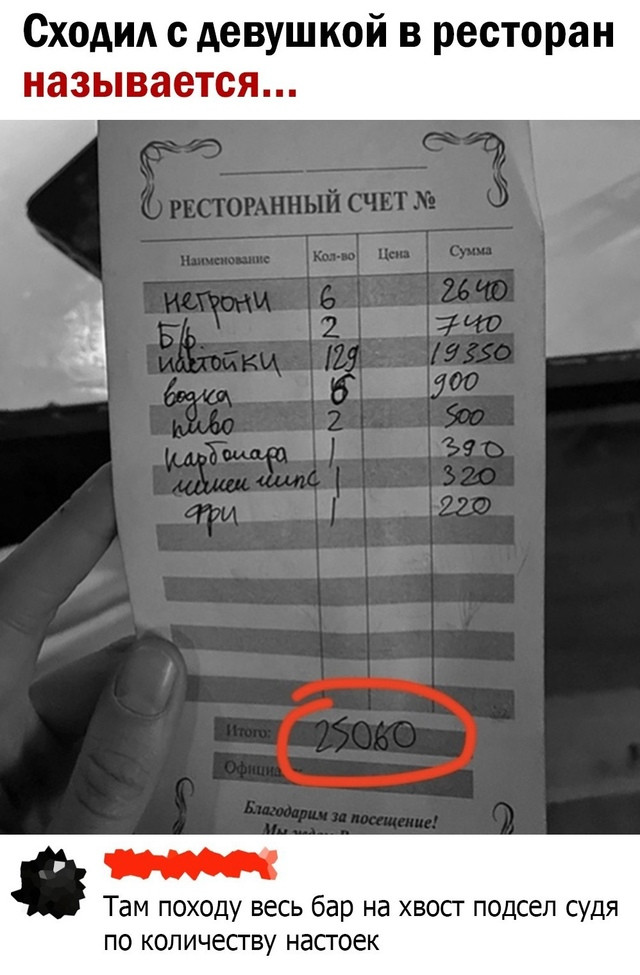 Сходил с девушкой в ресторан
называется...
РЕСТОРАННЫЙ СЧЕТ №
Наименование Кол-во Цена Сумма
негрони 6 2640
Б/р. 2 740
настойки 129 19350
водка 6 900
пиво 2 500
карбонара 1 390
чикен чипс 1 320
фри 1 220
Итого: 25060
Благодарим за посещение!
Там походу весь бар на хвост подсел судя
по количеству настоек